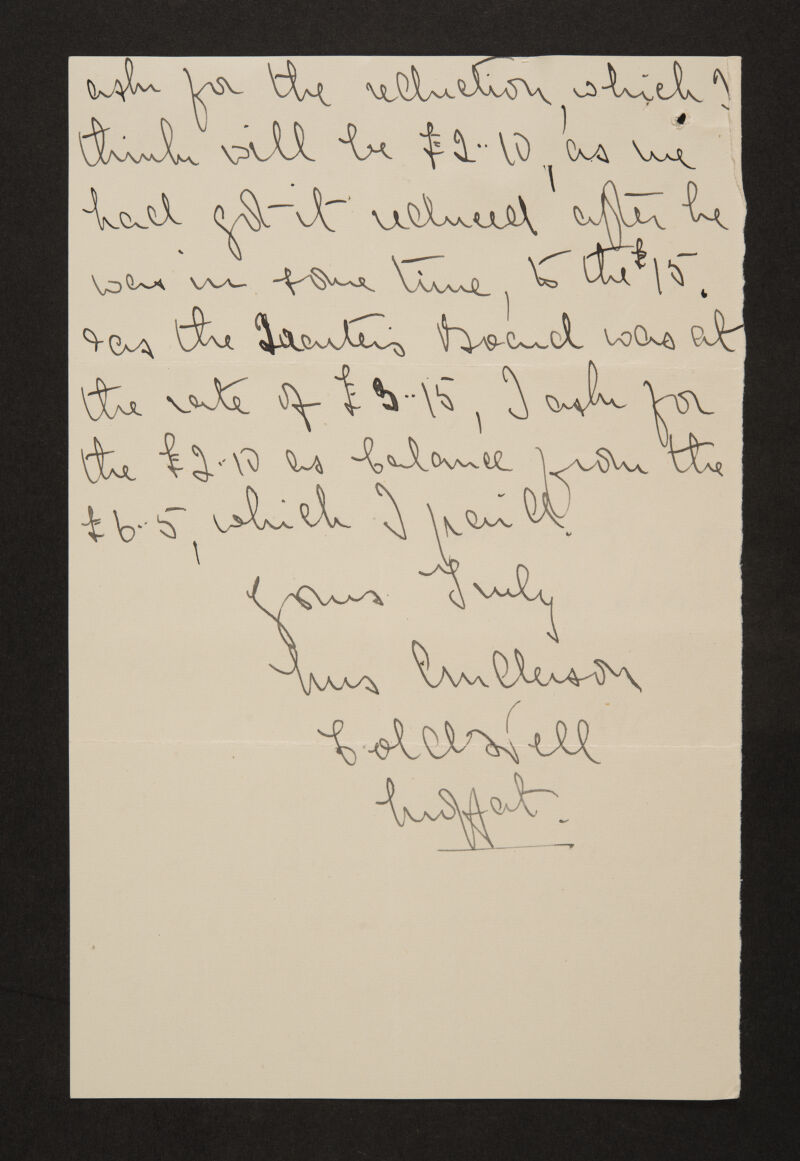 ask for the reduction, which I
think will be £2..10, as we
had got it reduced after he
was in some time, to the £15.
& as the Quarters Board was at
the rate of £3..15, I ask for
the £2.10 as balance from the
£6..5, which I paid.
Yours Truly
Mrs Anderson
Coldwell
Moffat.